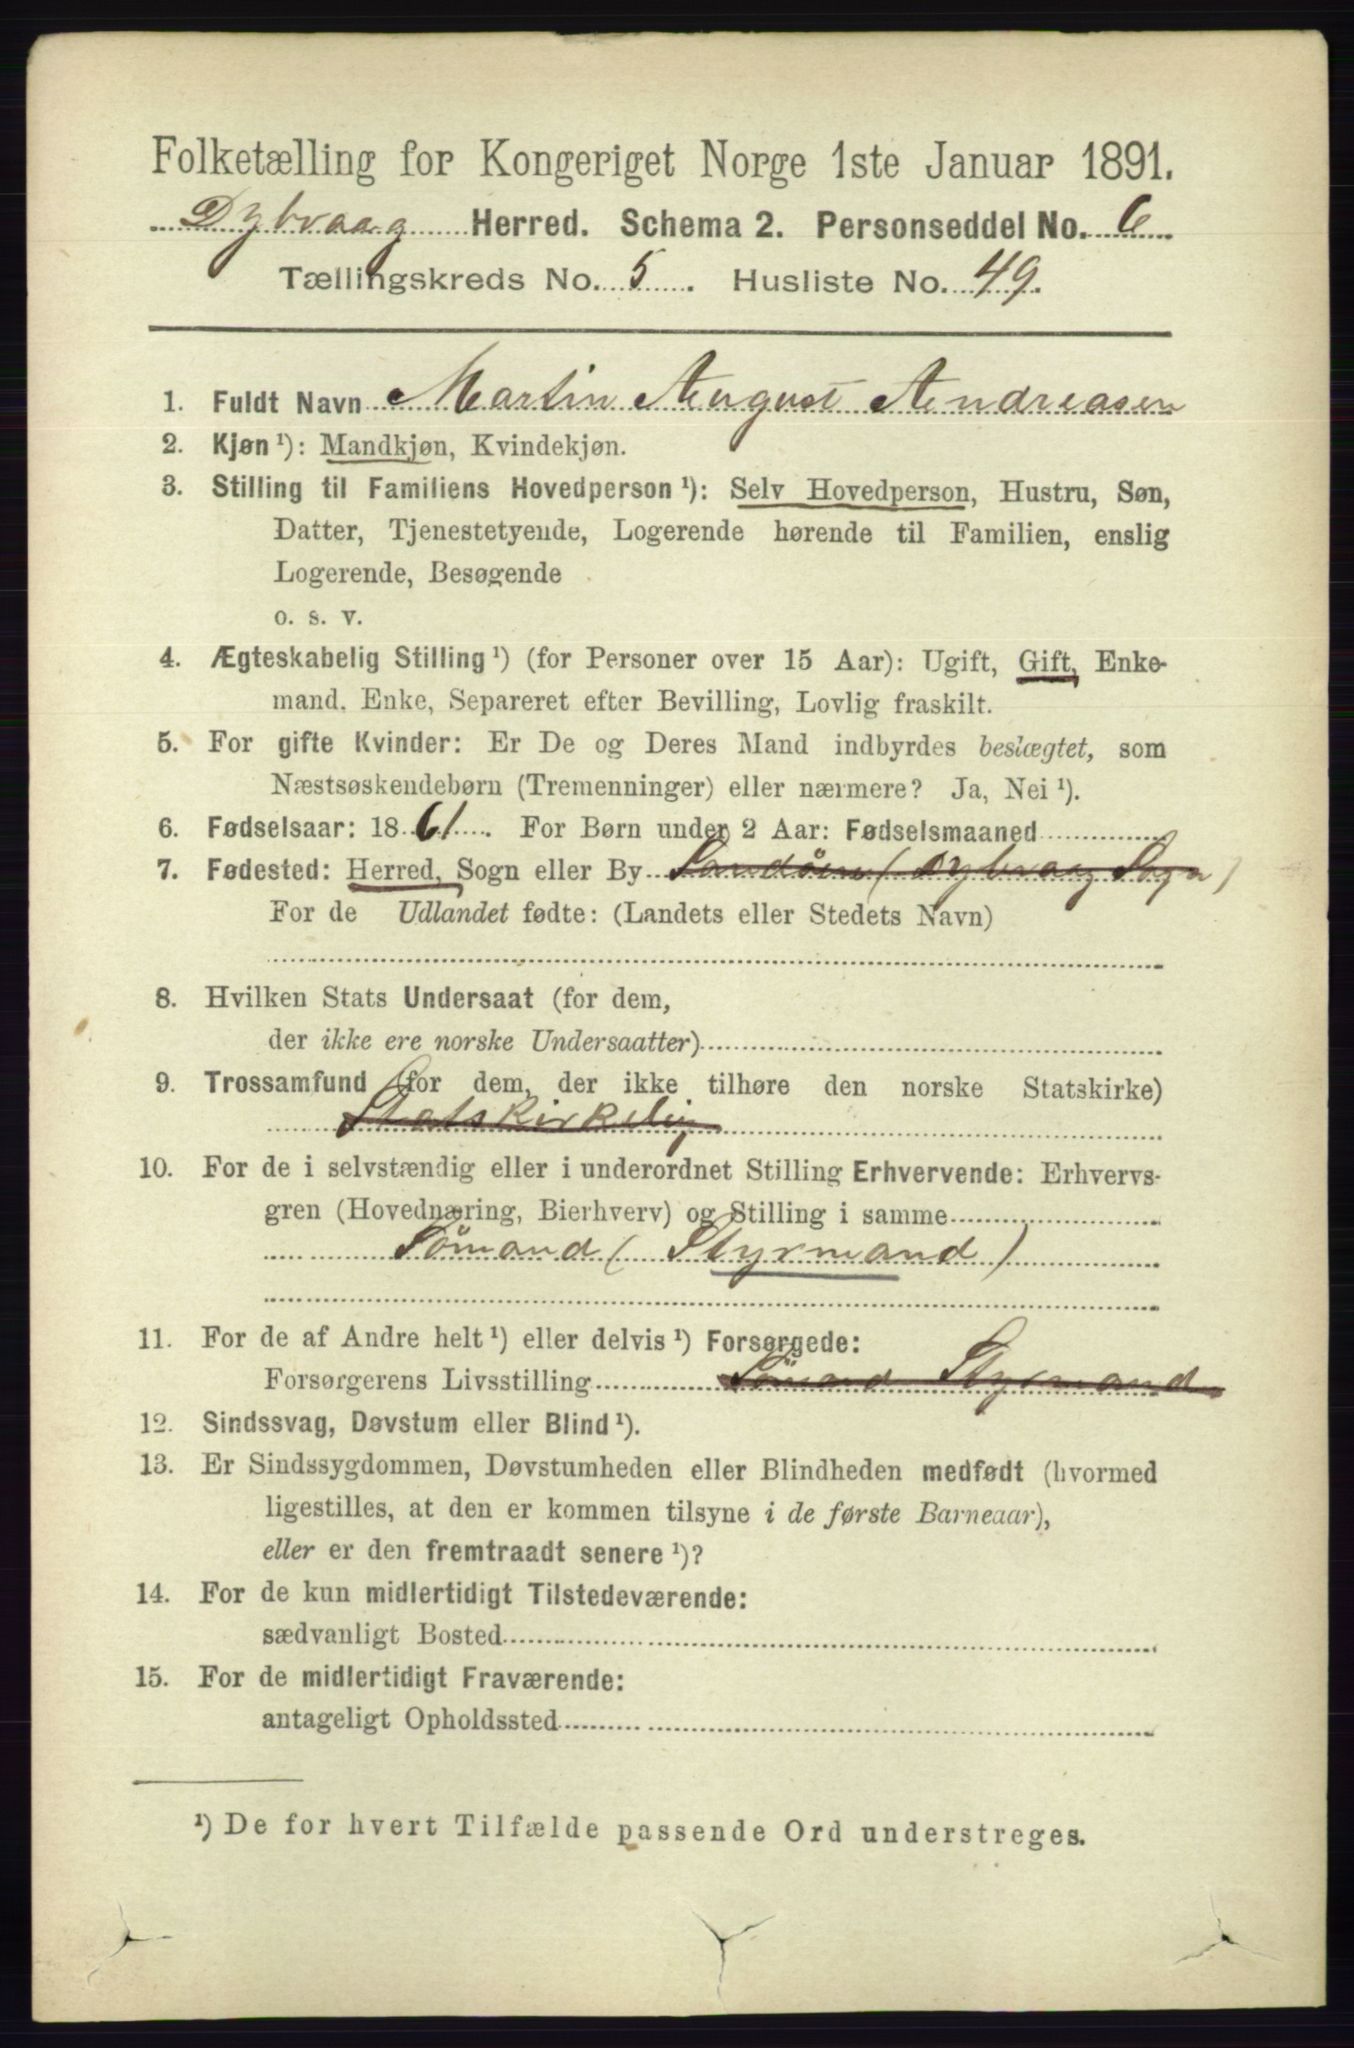 Folketælling for Kongeriget Norge 1ste Januar 1891.
Dybvaag Herred. Schema 2. Personseddel No. 6.
Tællingskreds No. 5. Husliste No. 49.
1. Fuldt Navn Martin August Andreasen
2. Kjøn ¹): Mandkjøn, Kvindekjøn.
3. Stilling til Familiens Hovedperson ¹): Selv Hovedperson, Hustru, Søn,
Datter, Tjenestetyende, Logerende hørende til Familien, enslig
Logerende, Besøgende
o. s. v.
4. Ægteskabelig Stilling ¹) (for Personer over 15 Aar): Ugift, Gift, Enke-
mand, Enke, Separeret efter Bevilling, Lovlig fraskilt.
5. For gifte Kvinder: Er De og Deres Mand indbyrdes beslægtet, som
Næstsøskendebørn (Tremenninger) eller nærmere? Ja, Nei ¹).
6. Fødselsaar: 1861. For Børn under 2 Aar: Fødselsmaaned
7. Fødested: Herred, Sogn eller By Sandøen (Dybvaag Sogn)
For de Udlandet fødte: (Landets eller Stedets Navn)
8. Hvilken Stats Undersaat (for dem,
der ikke ere norske Undersaatter)
9. Trossamfund (for dem, der ikke tilhøre den norske Statskirke)
Statskirkelig
10. For de i selvstændig eller i underordnet Stilling Erhvervende: Erhvervs-
gren (Hovednæring, Bierhverv) og Stilling i samme
Sömand (Styrmand)
11. For de af Andre helt ¹) eller delvis ¹) Forsørgede:
Forsørgerens Livsstilling Sömand Styrmand
12. Sindssvag, Døvstum eller Blind ¹).
13. Er Sindssygdommen, Døvstumheden eller Blindheden medfødt (hvormed
ligestilles, at den er kommen tilsyne i de første Barneaar),
eller er den fremtraadt senere ¹)?
14. For de kun midlertidigt Tilstedeværende:
sædvanligt Bosted
15. For de midlertidigt Fraværende:
antageligt Opholdssted
¹) De for hvert Tilfælde passende Ord understreges.